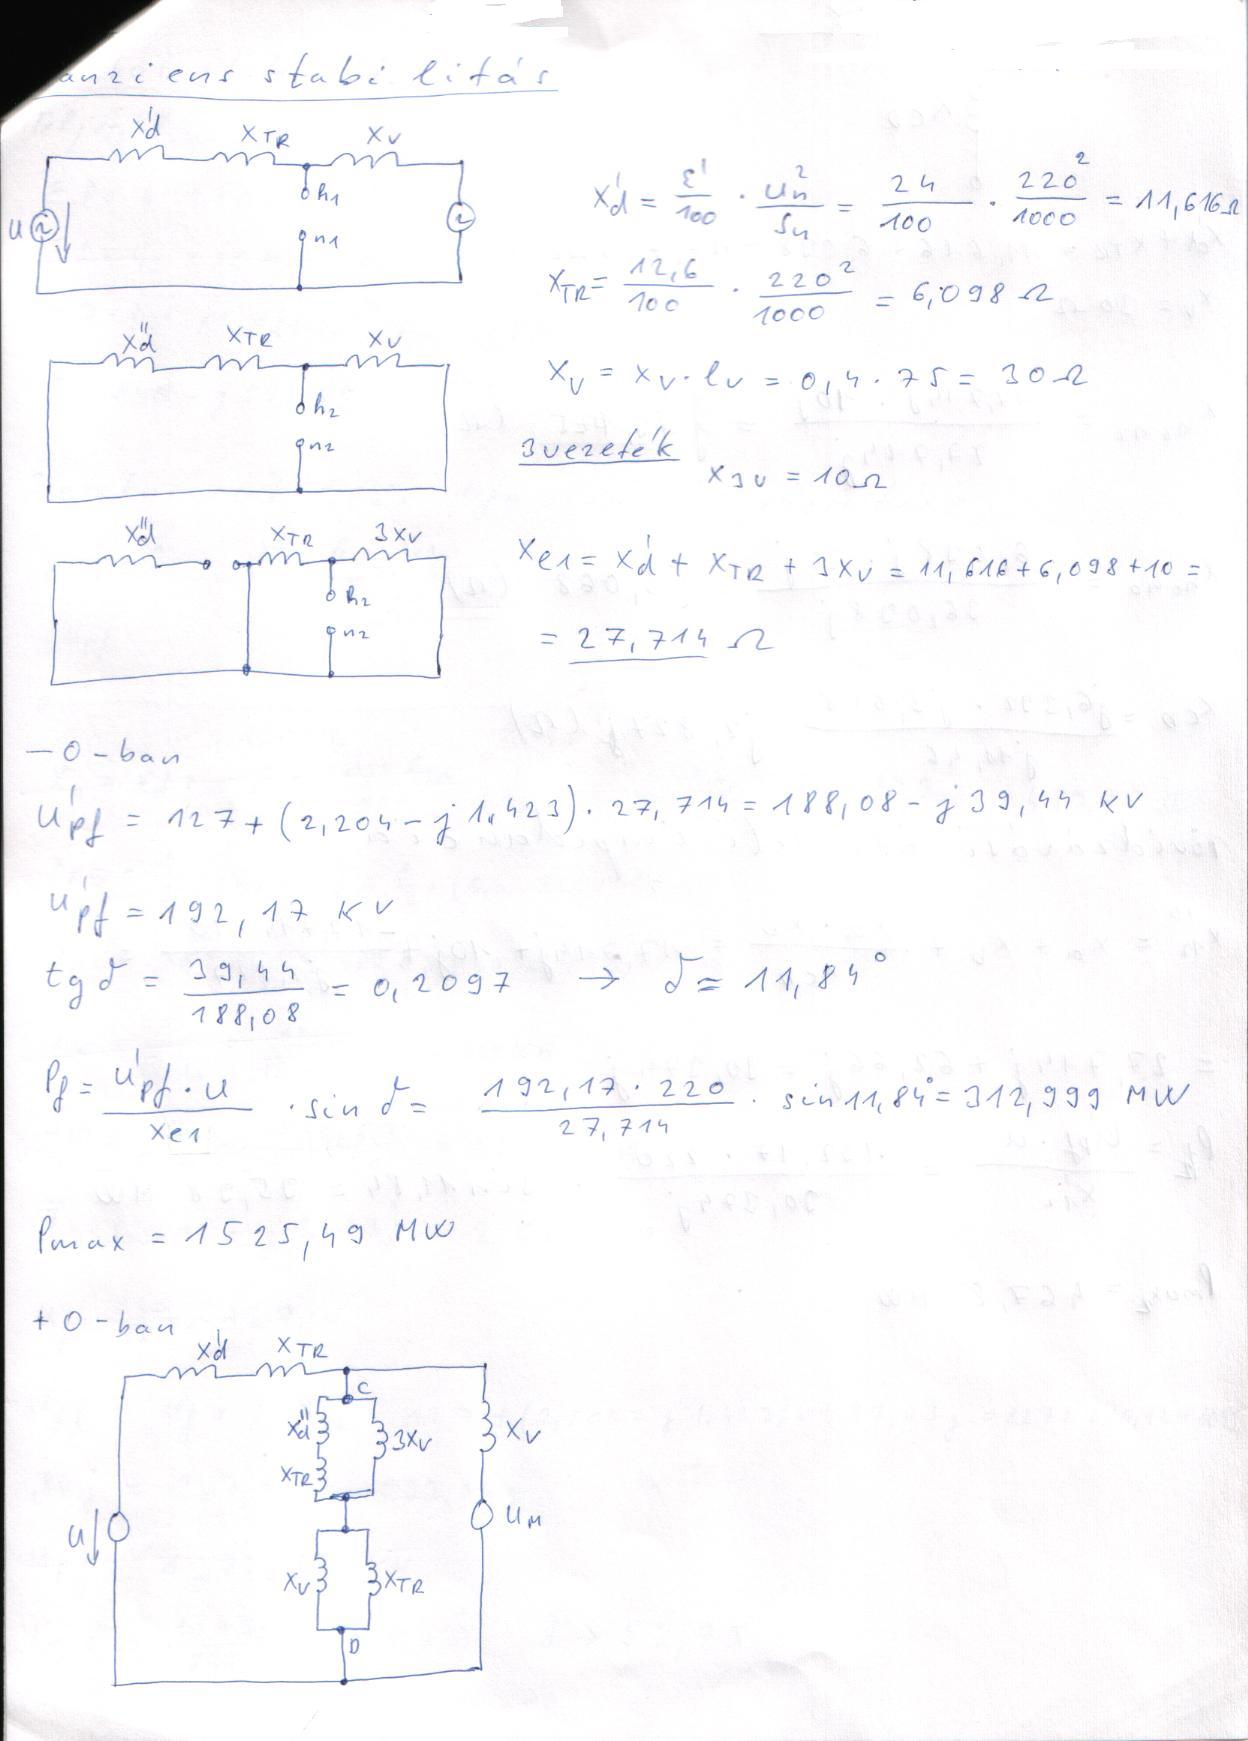 stabilitás
X'd XTR XV
h1
U
n1
X'd = ε'/100 · Un²/Sn = 24/100 · 220²/1000 = 11,616Ω
XTR = 12,6/100 · 220²/1000 = 6,098 Ω
X"d XTR XV
h2
n2
XV = XV · lV = 0,4 · 75 = 30Ω
3 vezeték
X3V = 10Ω
X"d XTR 3XV
h2
n2
Xe1 = X'd + XTR + 3XV = 11,616 + 6,098 + 10 =
= 27,714 Ω
- 0 - ban
U'pf = 127 + (2,204 - j 1,423) · 27,714 = 188,08 - j 39,44 KV
U'pf = 192,17 KV
tg δ = 39,44/188,08 = 0,2097 → δ = 11,84°
Pf = U'pf · U/Xe1 · sin δ = 192,17 · 220/27,714 · sin 11,84° = 312,999 MW
Pmax = 1525,49 MW
+ 0 - ban
X'd XTR
C
X"d 3XV XV
XTR
U UM
XV XTR
D